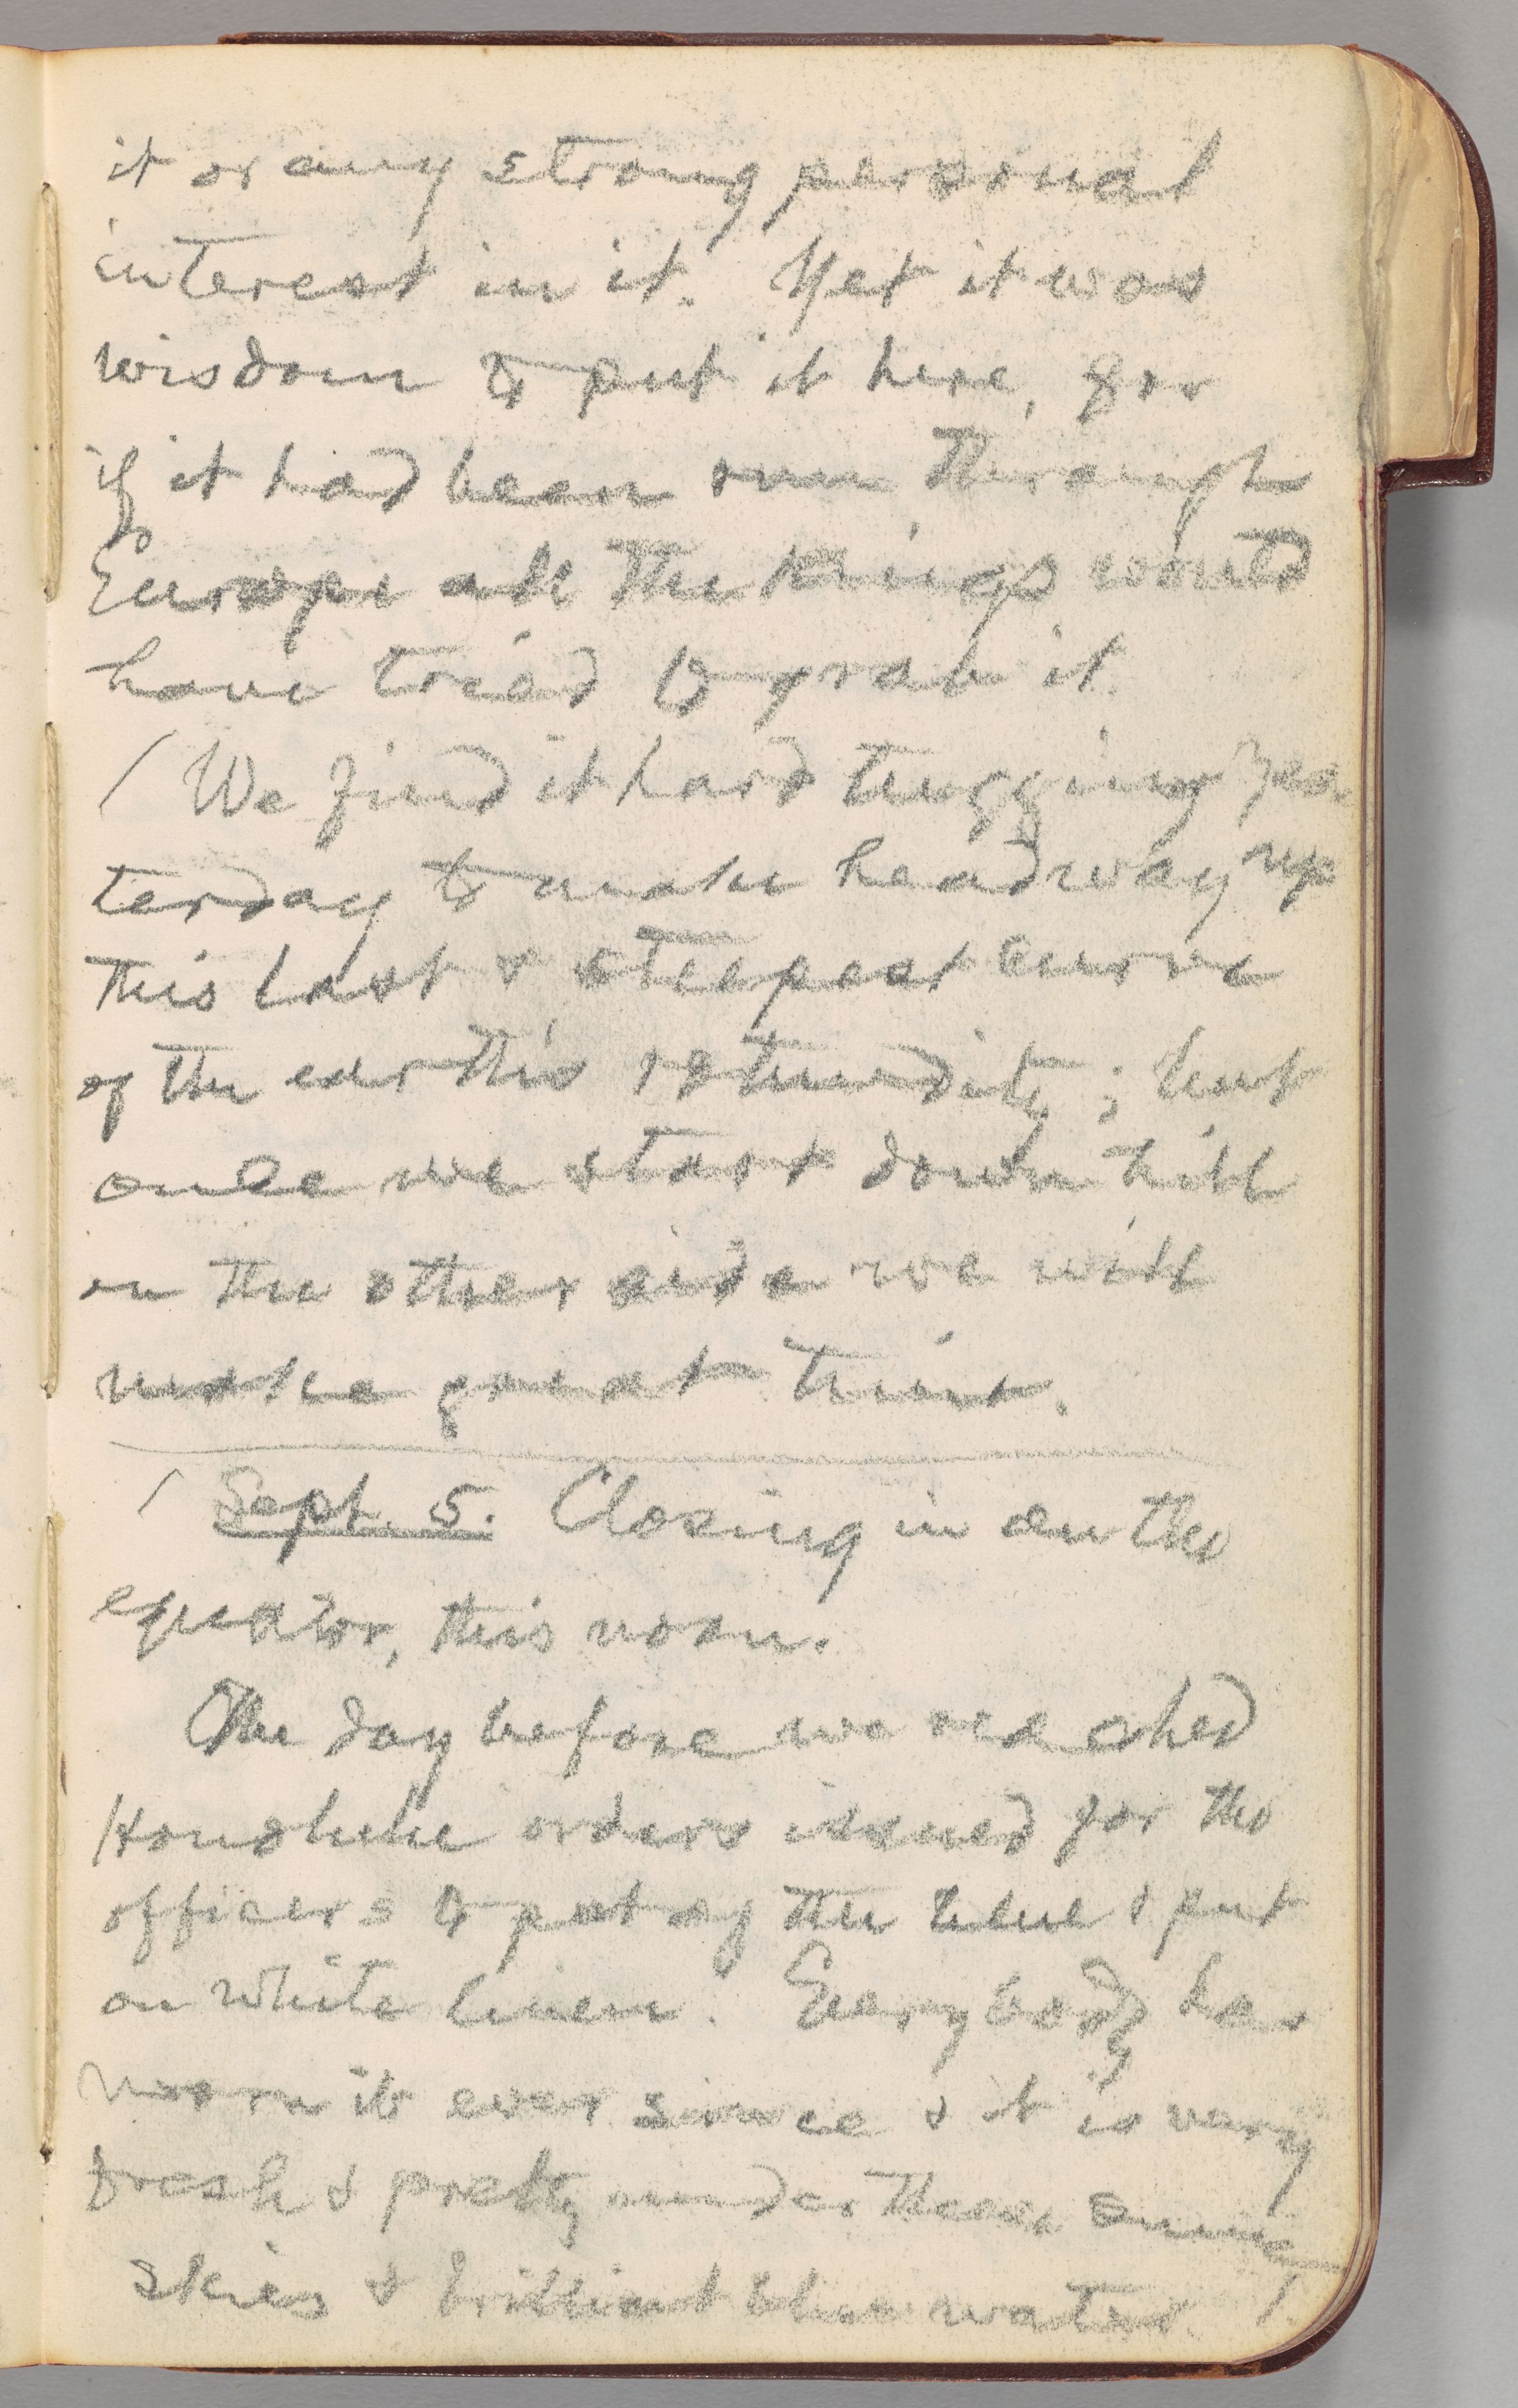 it or any strong personal
interest in it. Yet it was
wisdom to put it here, for
if it had been run through
Europe all the kings would
have tried to grab it.
( We find it hard tugging yes
terday to make headway up
this last & steepest curve
of the earth's rotundity; but
once we start down hill
on the other side we will
make great time.
( Sept. 5. Closing in on the
equator, this noon.
The day before we reached
Honolulu orders issued for the
officers to put off the blue & put
on white linen. Everybody has
worn it ever since & it is very
fresh & pretty under these sunny
skies & brilliant blue water. )